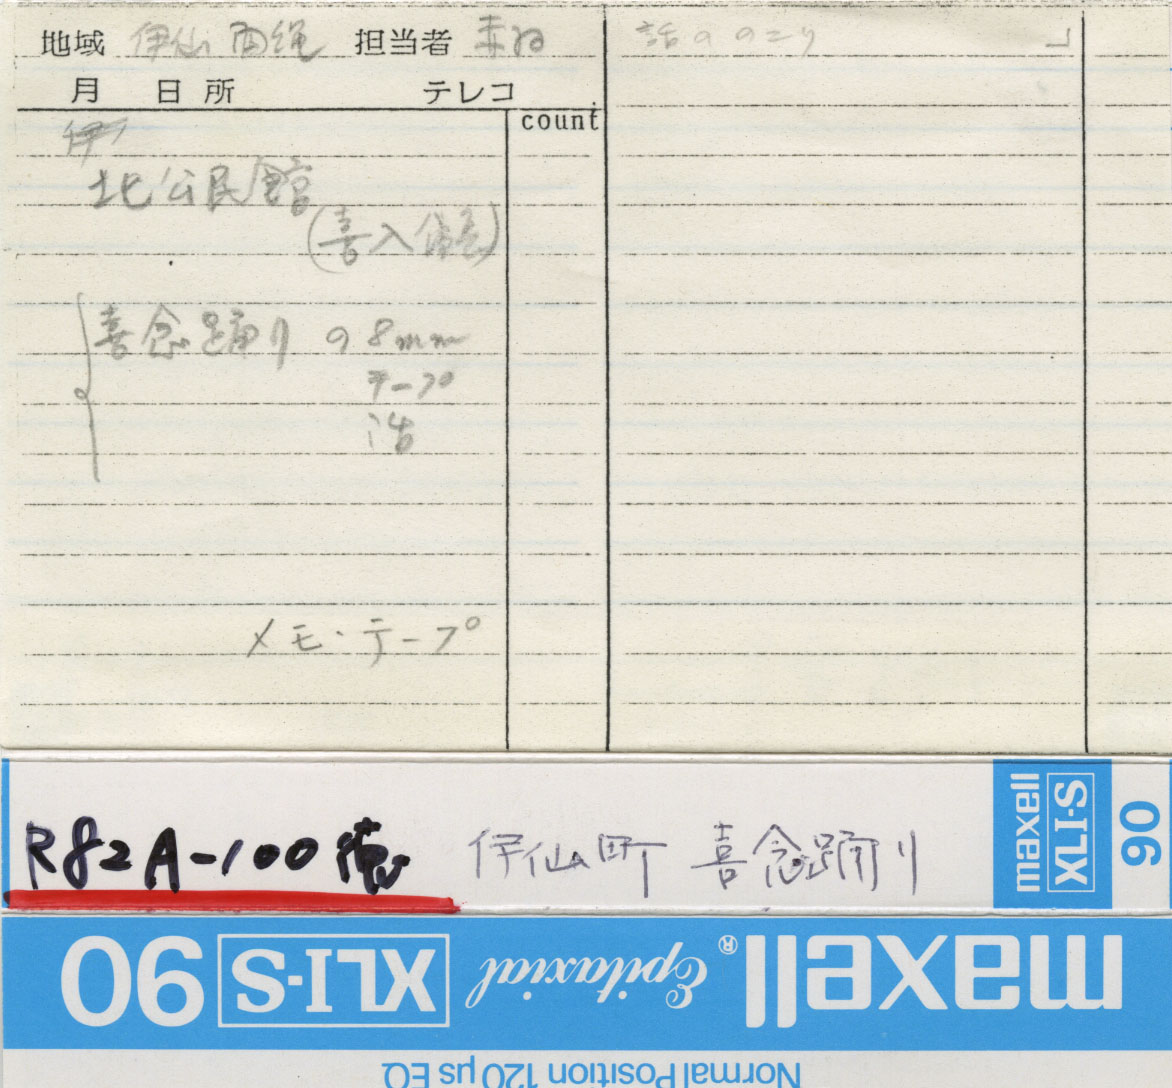 地域 伊仙 面縄 担当者
月 日 所 テレコ
count
北公民館
(喜入
喜念踊り の 8mm
テープ
メモ・テープ
話ののこり 」
R82A-100 徳 伊仙町 喜念踊り
maxell
XLI-S
90
maxell® Epitaxial XLI-S 90
Normal Position 120 µs EQ